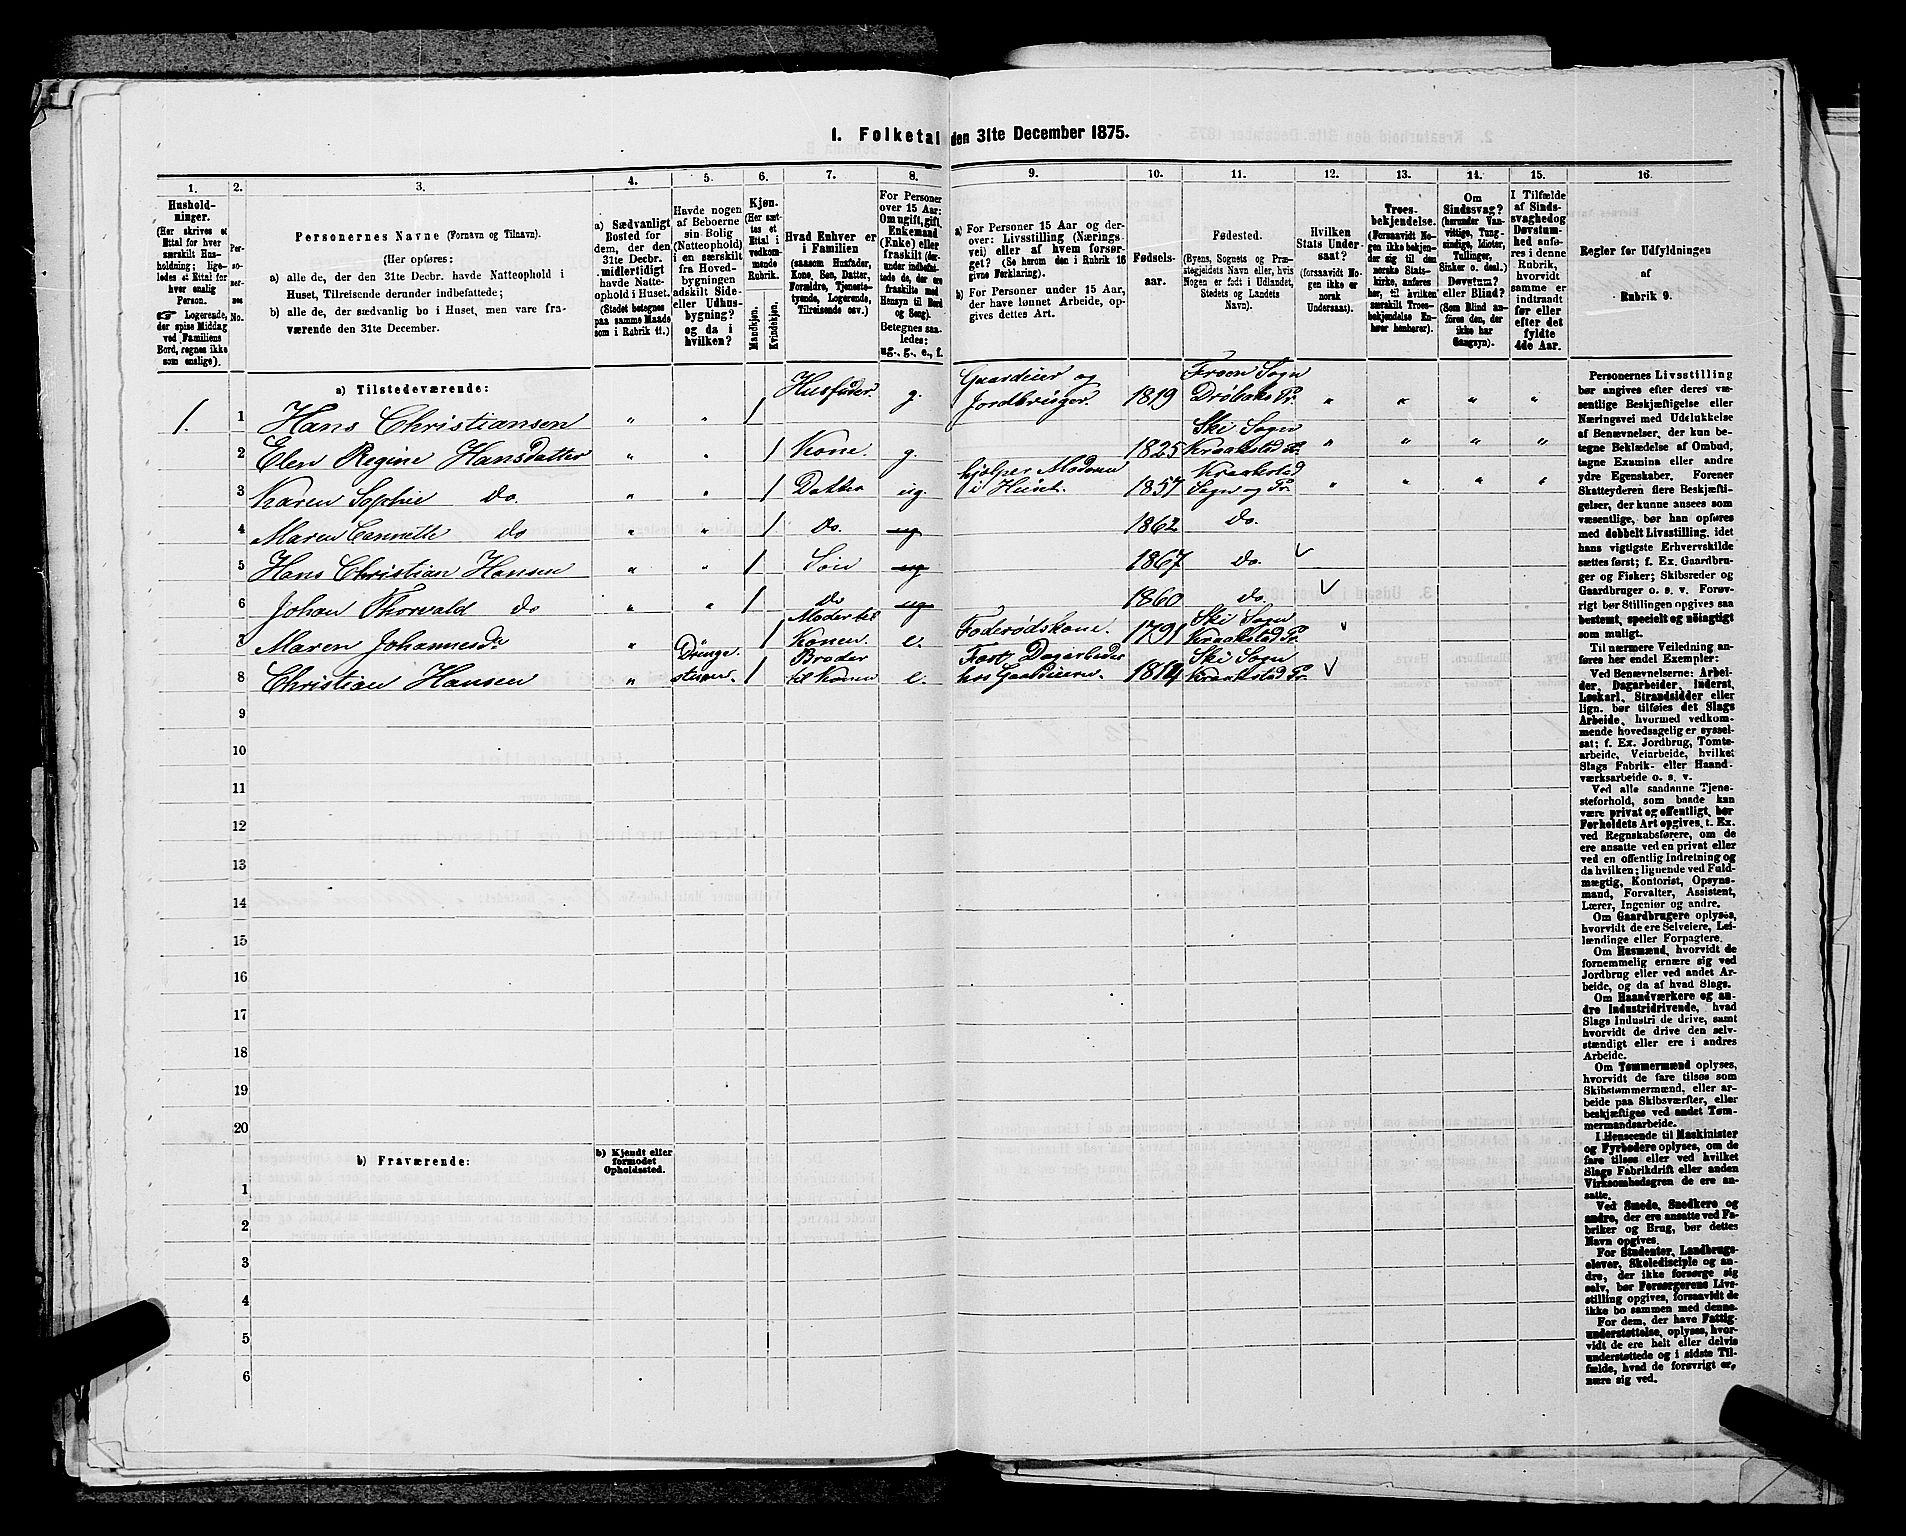 1. Folketal den 31te December 1875.
1. 2. 3. 4. 5. 6. 7. 8. 9. 10. 11. 12. 13. 14. 15. 16.
Hushold-
ninger.
(Her skrives et
Ettal for hver
særskilt Hus-
holdning; lige-
ledes et Ettal for
hver enslig
Person.
☞ Logerende,
der spise Middag
ved Familiens
Bord, regnes ikke
som enslige).
Per-
so-
ner-
nes
No.
Personernes Navne (Fornavn og Tilnavn).
(Her opføres:
a) alle de, der den 31te Decbr. havde Natteophold i
Huset, Tilreisende derunder indbefattede;
b) alle de, der sædvanlig bo i Huset, men vare fra-
værende den 31te December.
a) Sædvanligt
Bosted for
dem, der den
31te Decbr.
midlertidigt
havde Natte-
ophold i Huset.
(Stedet betegnes
paa samme Maade
som i Rubrik 11.)
Havde nogen
af Beboerne
sin Bolig
(Natteophold)
i en særskilt
fra Hoved-
bygningen
adskilt Side-
eller Udhus-
bygning?
og da i
hvilken?
Kjøn.
(Her sæt-
tes et
Ettal i
vedkom-
mende
Rubrik.
Mandkjøn.
Kvindekjøn.
Hvad Enhver er
i Familien
(saasom Husfader,
Kone, Søn, Datter,
Forældre, Tjeneste-
tyende, Logerende,
Tilreisende osv.)
For Personer
over 15 Aar:
Om ugift, gift,
Enkemand
(Enke) eller
fraskilt (der-
under indbefat-
tede de, der ere
fraskilte med
Hensyn til Bord
og Seng).
Betegnes saa-
ledes:
ug., g., e., f.
a) For Personer 15 Aar og der-
over: Livsstilling (Nærings-
vei) eller af hvem forsør-
get? (Se herom den i Rubrik 16
givne Forklaring).
b) For Personer under 15 Aar,
der have lønnet Arbeide, op-
gives dettes Art.
Fødsels-
aar.
Fødested.
(Byens, Sognets og Præ-
stegjeldets Navn eller, hvis
Nogen er født i Udlandet,
Stedets og Landets
Navn).
Hvilken
Stats Under-
saat?
(forsaavidt No-
gen ikke er
norsk
Undersaat).
Troes-
bekjendelse.
(Forsaavidt No-
gen ikke bekjen-
der sig til den
norske Stats-
kirke, anføres
her, til hvilken
særskilt Troes-
bekjendelse En-
hver henhører).
Om
Sindssvag?
(herunder Van-
vittige, Tung-
sindige, Idioter,
Tullinger,
Sinker o. desl.)
Døvstum?
eller Blind?
(Som Blind an-
føres den, der
ikke har
Gangsyn).
I Tilfælde
af Sinds-
svaghed og
Døvstum-
hed anfø-
res i denne
Rubrik,
hvorvidt
samme er
indtraadt
før eller
efter det
fyldte
4de Aar.
Regler for Udfyldningen
af
Rubrik 9.
a) Tilstedeværende:
1. 1 Hans Christiansen " " 1 Husfader g. Gaardeier og Jordbruger. 1819 Froen Sogn Drøbaks Pr. " " " "
2 Elen Regine Hansdatter " " 1 Kone g. 1825 Ski Sogn Kraakstad Pr. " " " "
3 Karen Sophie do. " " 1 Datter ug. hjelper Moderen i Huset. 1857 Kraakstad Sogn og Pr. " " " "
4 Maren do " " 1 do. ug 1862 do.
5 Hans Christian Hansen " " 1 Søn ug 1867 do.
6 Johan Thorvald do " " 1 do ug 1860 do.
7 Maren Johannesd. " 1 Moder til Konen e. Foderødskone. 1791 Ski Sogn Kraakstad Pr.
8 Christian Hansen " Drengestuen. 1 Broder til Konen e. Fast Dagarbeider hos Gaardeieren. 1814 Ski Sogn Kraakstad Pr.
9
10
11
12
13
14
15
16
17
18
19
20
b) Fraværende:
b) Kjendt eller
formodet
Opholdssted.
1
2
3
4
5
6
Personernes Livsstilling
bør angives efter deres væ-
sentlige Beskjæftigelse eller
Næringsvei med Udelukkelse
af Benævnelser, der kun be-
tegne Beklædelse af Ombud,
tagne Examina eller andre
ydre Egenskaber. Forener
Skatteyderen flere Beskjæfti-
gelser, der kunne ansees som
væsentlige, bør han opføres
med dobbelt Livsstilling, idet
hans vigtigste Erhvervskilde
sættes først; f. Ex. Gaardbru-
ger og Fisker; Skibsreder og
Gaardbruger o. s. v. Forøv-
rigt bør Stillingen opgives saa
bestemt, specielt og nøiagtigt
som muligt.
Til nærmere Veiledning an-
føres her endel Exempler:
Ved Benævnelserne: Arbei-
der, Dagarbeider, Inderst,
Løskarl, Strandsidder eller
lign. bør tilføies det Slags
Arbeide, hvormed vedkom-
mende hovedsagelig er syssel-
sat; f. Ex. Jordbrug, Tomte-
arbeide, Veiarbeide, hvilket
Slags Fabrik- eller Haand-
værksarbeide o. s. v.
Ved alle saadanne Tjene-
steforhold, som baade kan
være privat og offentligt, bør
Forholdets Art opgives, t. Ex.
ved Regnskabsførere, om de
ere ansatte ved en privat eller
ved en offentlig Indretning og
da hvilken; lignende ved Fuld-
mægtig, Kontorist, Opsyns-
mand, Forvalter, Assistent,
Lærer, Ingeniør og andre.
Om Gaardbrugere oplyses,
hvorvidt de ere Selveiere, Lei-
lændinge eller Forpagtere.
Om Husmænd, hvorvidt de
fornemmelig ernære sig ved
Jordbrug eller ved andet Ar-
beide, og da af hvad Slags.
Om Haandværkere og an-
dre Industridrivende, hvad
Slags Industri de drive, samt
hvorvidt de drive den selv-
stændigt eller ere i andres
Arbeide.
Om Tømmermænd oplyses,
hvorvidt de fare tilsøs som
Skibstømmermænd, eller ar-
beide paa Skibsværfter, eller
beskjæftiges ved andet Tøm-
mermandsarbeide.
I Henseende til Maskinister
og Fyrbødere oplyses, om de
fare tilsøs eller ved hvilket
Slags Fabrikdrift eller anden
Virksomhedsgren de ere an-
satte.
Ved Smede, Snedkere og
andre, der ere ansatte ved Fa-
briker og Brug, bør dettes
Navn opgives.
For Studenter, Landbrugs-
elever, Skoledisciple og an-
dre, der ikke forsørge sig
selv, bør Forsørgerens Livs-
stilling opgives, forsaavidt de
ikke bo sammen med denne.
For dem, der have Fattig-
understøttelse, oplyses, hvor-
vidt de ere helt eller delvis
understøttede og i sidste Til-
fælde, hvad de forøvrigt er-
nære sig ved.